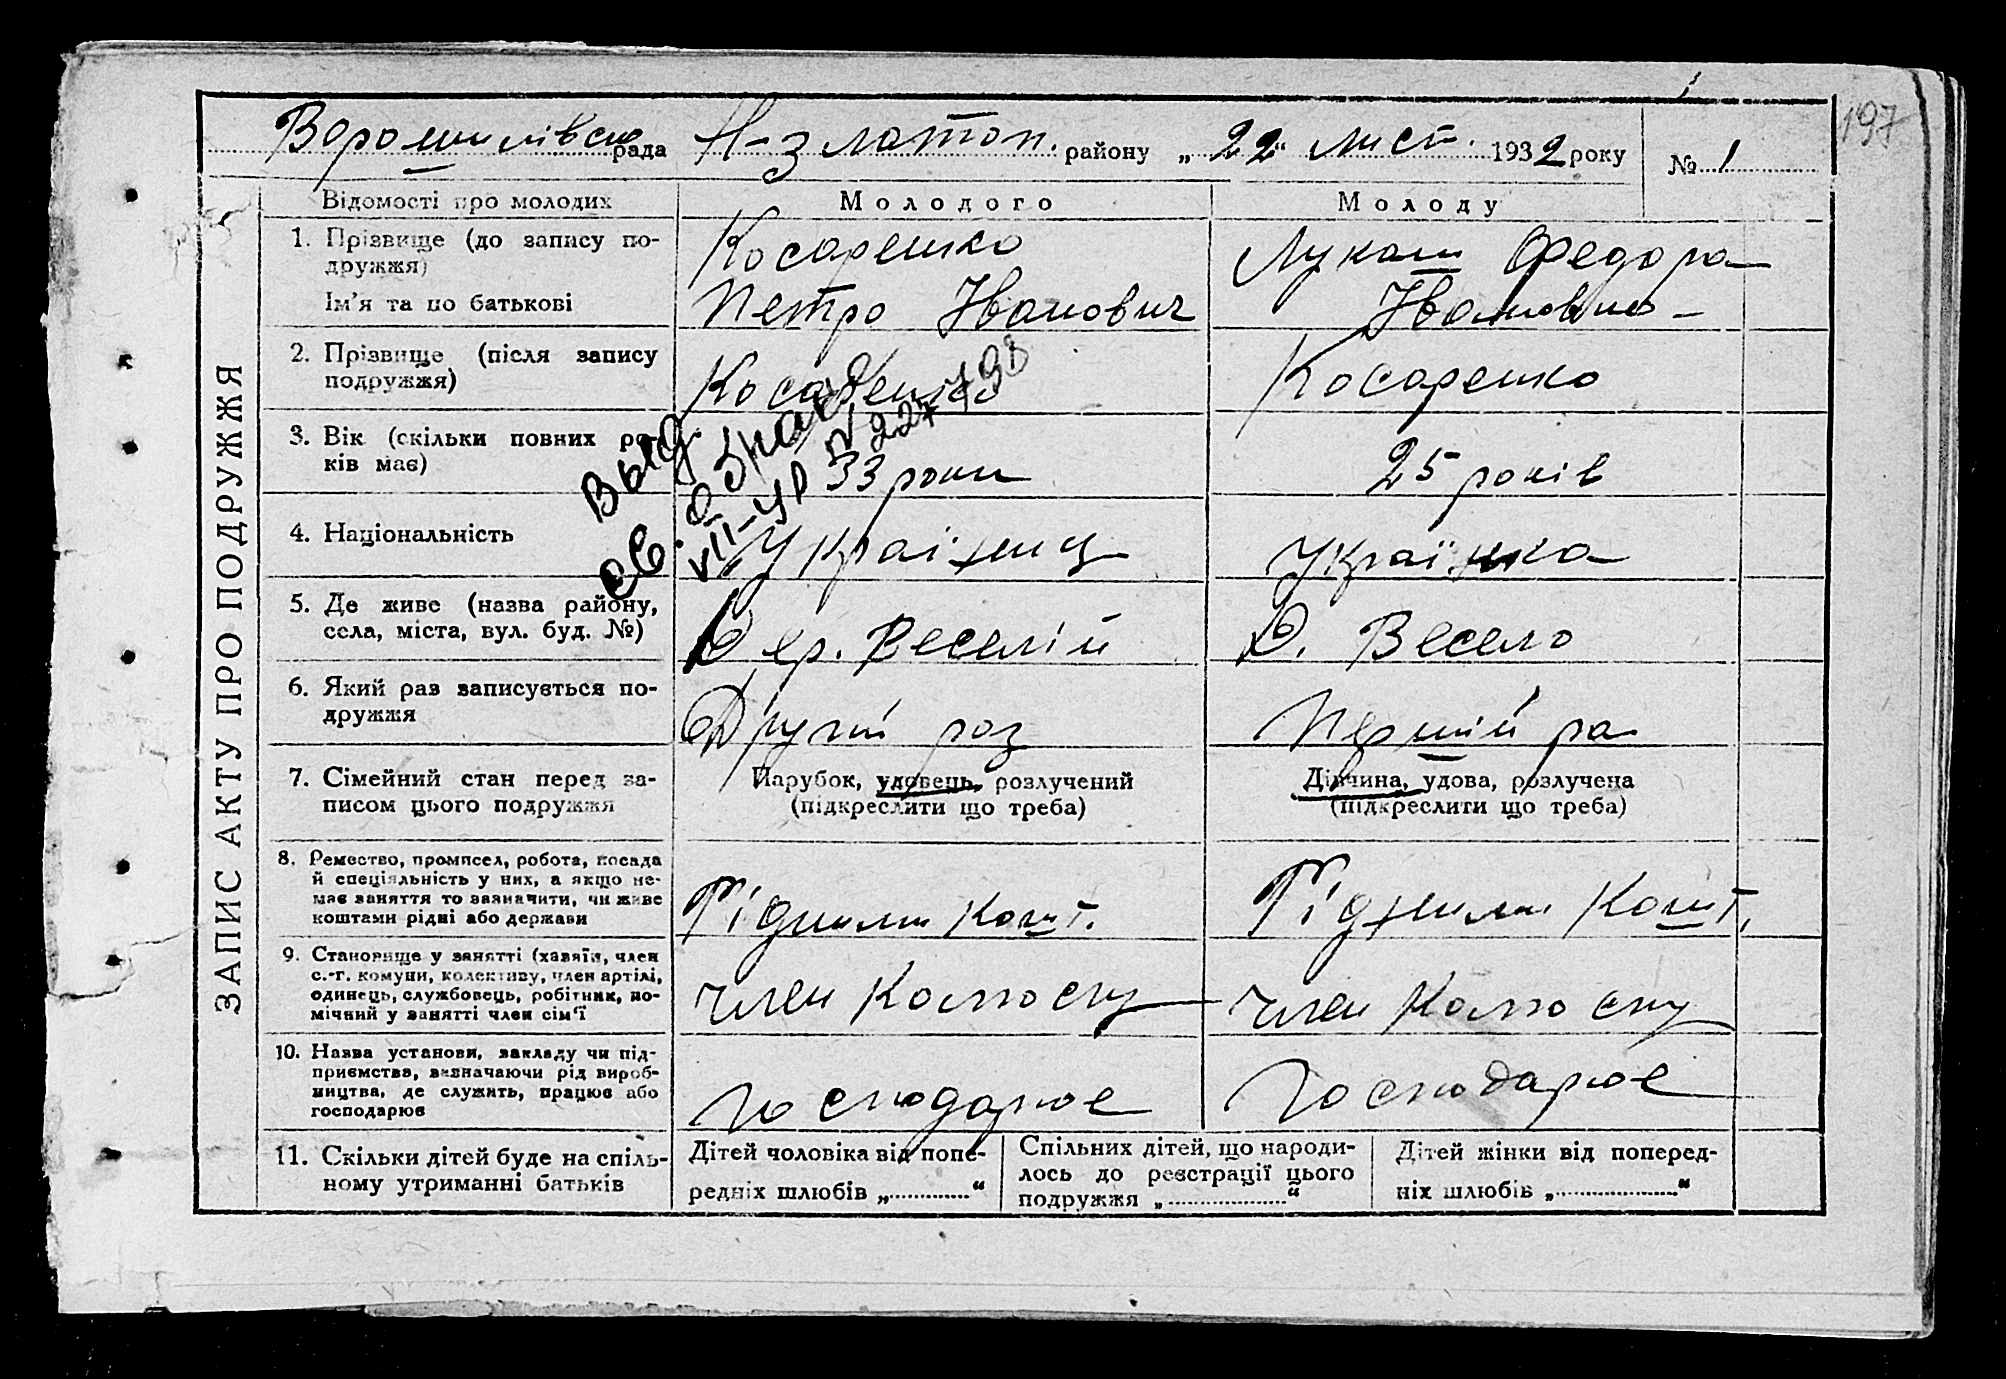 197
Ворошилівська рада Н-Златоп. району „22“ лист. 1932 року № 1
ЗАПИС АКТУ ПРО ПОДРУЖЖЯ
Відомості про молодих Молодого Молоду
1. Прізвище (до запису по-
дружжя)
Ім'я та по батькові
Косаренко
Петро Іванович
Лукаш Федора
Івановна
2. Прізвище (після запису
подружжя)
Косаренко
Косаренко
3. Вік (скільки повних ро-
ків має)
33 роки
25 років
Выд.
св. о брак
VII-УР № 227798
4. Національність
Українец
Українка
5. Де живе (назва району,
села, міста, вул. буд. №)
Дер. Веселій
Д. Весело
6. Який раз записується по-
дружжя
Другій раз
Першій ра
7. Сімейний стан перед за-
писом цього подружжя
Парубок, удовець, розлучений
(підкреслити що треба)
Дівчина, удова, розлучена
(підкреслити що треба)
8. Ремество, промисел, робота, посада
й спеціяльність у них, а якщо не-
має заняття то зазначити, чи живе
коштами рідні або держави
Рідними кошт.
Рідними кошт.
9. Становище у занятті (хазяїн, член
с.-г. комуни, колективу, член артілі,
одинець, службовець, робітник, по-
мічний у занятті член сім'ї
член колгоспу
член колгоспу
10. Назва установи, закладу чи під-
приємства, зазначаючи рід вироб-
ництва, де служить, працює або
господарює
господарює
господарює
11. Скільки дітей буде на спіль-
ному утриманні батьків
Дітей чоловіка від попе-
редніх шлюбів „ “
Спільних дітей, що народи-
лось до реєстрації цього
подружжя „ “
Дітей жінки від поперед-
ніх шлюбів „ “